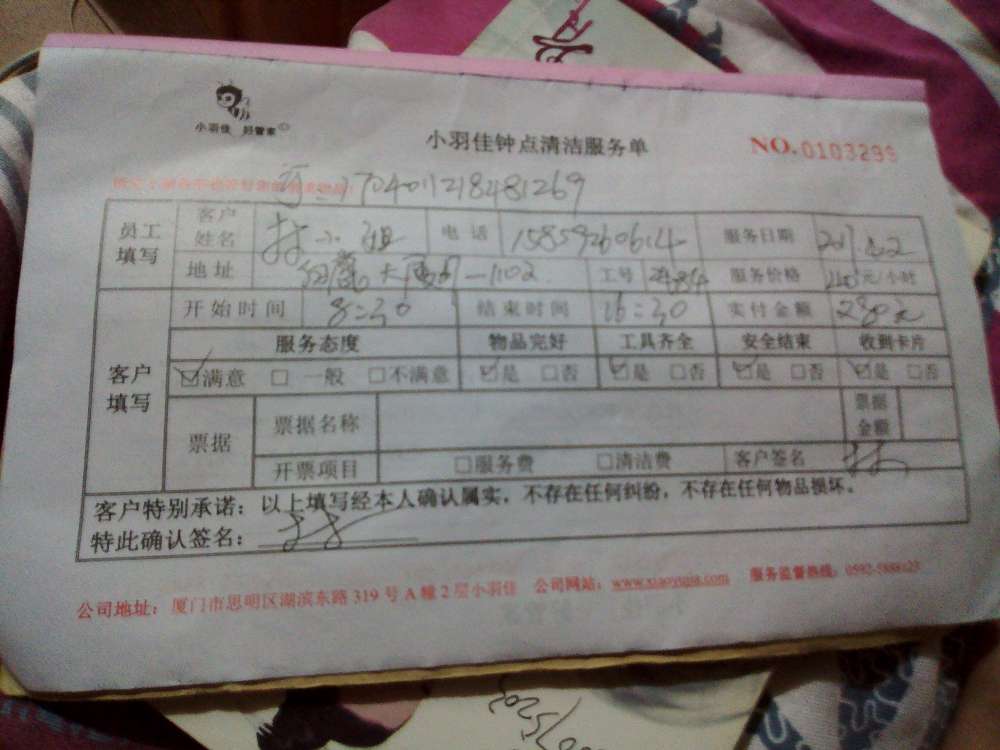 小羽佳 好管家
小羽佳钟点清洁服务单
NO.0103299
170401121848126​9
员工填写 客户姓名 林小姐 电话 15859260614 服务日期
地址 工号 服务价格 元/小时
开始时间 8:30 结束时间 16:30 实付金额 280元
服务态度 物品完好 工具齐全 安全结束 收到卡片
客户填写 ☑满意 □一般 □不满意 ☑是 □否 ☑是 □否 ☑是 □否 ☑是 □否
票据 票据名称 票据金额
开票项目 □服务费 □清洁费 客户签名 林
客户特别承诺：以上填写经本人确认属实，不存在任何纠纷，不存在任何物品损坏。
特此确认签名：林
公司地址：厦门市思明区湖滨东路319号A幢2层小羽佳 公司网站：www.xiaoyujia.com 服务监督热线：